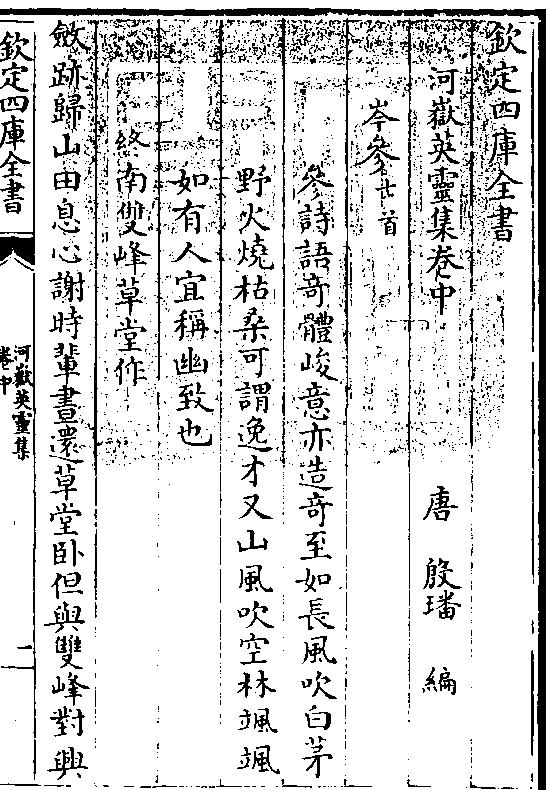 欽定四庫全書
河嶽英靈集卷中
唐 殷璠 編
岑參廿首
參詩語奇體峻意亦造奇至如長風吹白茅
野火燒枯桑可謂逸才又山風吹空林颯颯
如有人宜稱幽致也
終南雙峰草堂作
斂跡歸山田息心謝時輩晝還草堂卧但與雙峰對興
欽定四庫全書
河嶽英靈集
卷中
二